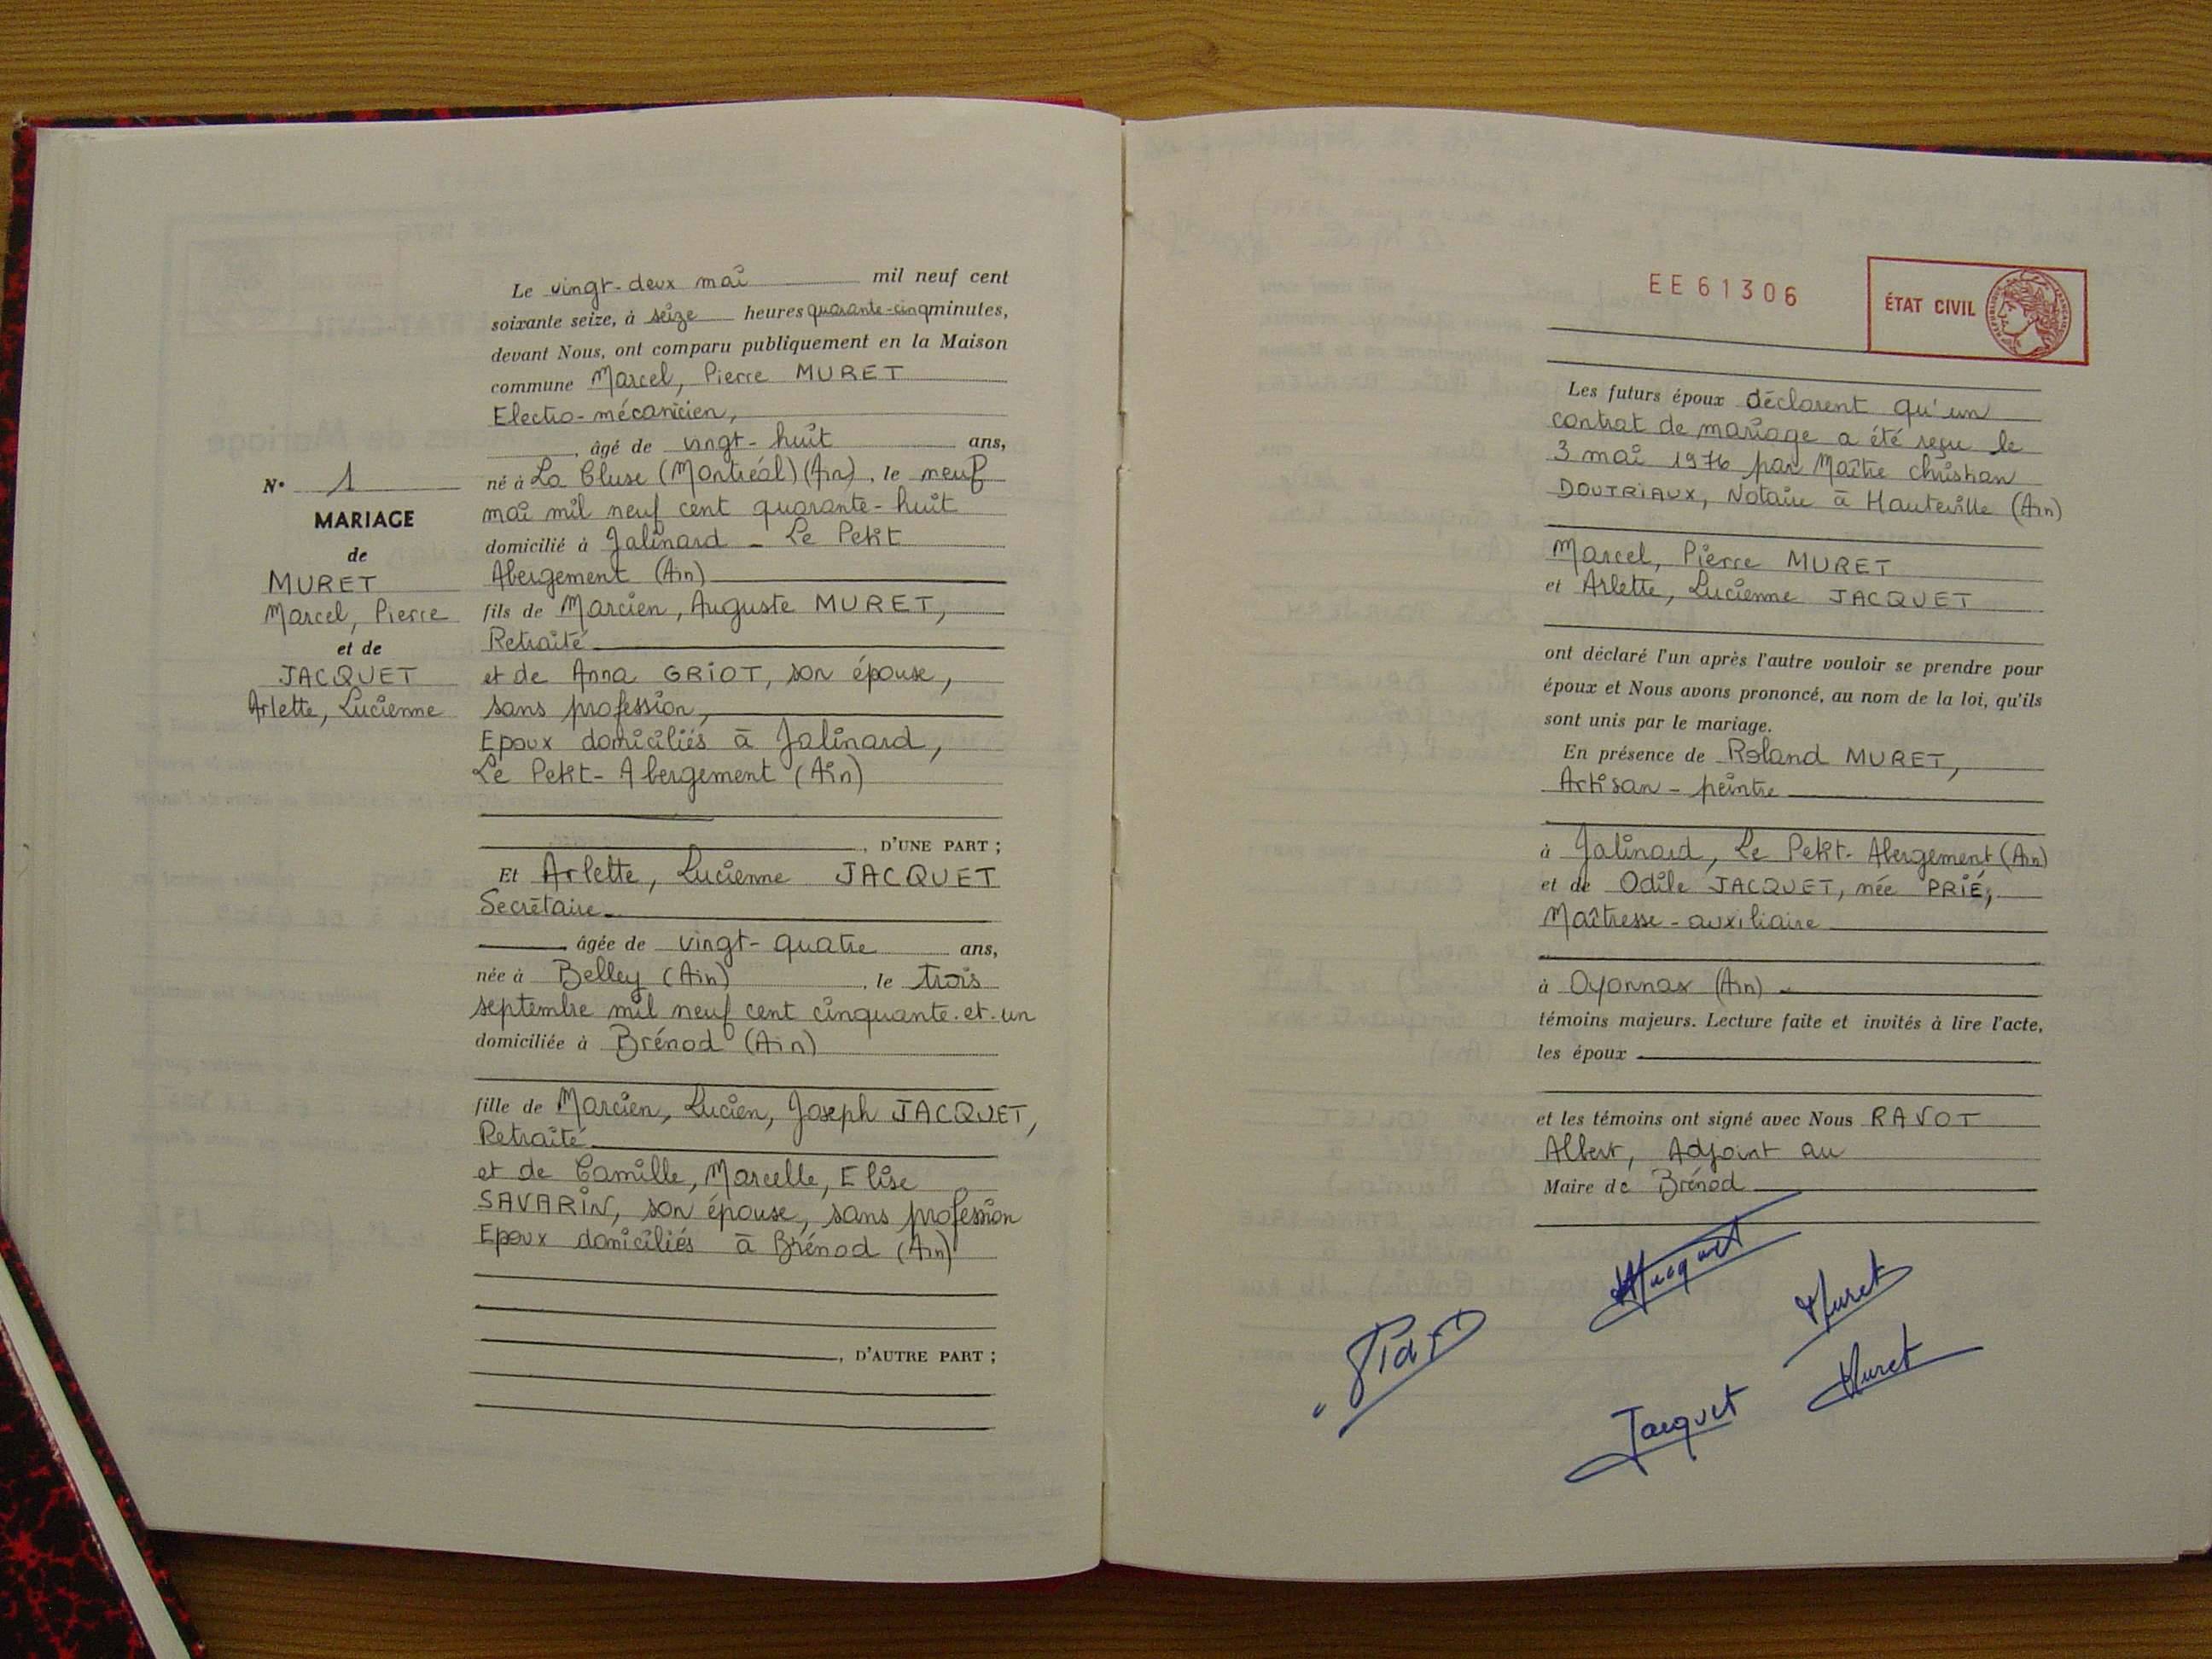 N° 1
MARIAGE
de
MURET
Marcel, Pierre
et de
JACQUET
Arlette, Lucienne
Le vingt-deux mai mil neuf cent
soixante seize, à seize heures quarante-cinq minutes,
devant Nous, ont comparu publiquement en la Maison
commune Marcel, Pierre MURET
Electro-mécanicien,
, âgé de vingt-huit ans,
né à La Cluse (Montréal) (Ain), le neuf
mai mil neuf cent quarante-huit
domicilié à Jalinard - Le Petit
Abergement (Ain)
fils de Marcien, Auguste MURET,
Retraité
et de Anna GRIOT, son épouse,
sans profession,
Epoux domiciliés à Jalinard,
Le Petit-Abergement (Ain)
, D'UNE PART ;
Et Arlette, Lucienne JACQUET
Secrétaire
, âgée de vingt-quatre ans,
née à Belley (Ain), le trois
septembre mil neuf cent cinquante-et-un
domiciliée à Brénod (Ain)
fille de Marcien, Lucien, Joseph JACQUET,
Retraité
et de Camille, Marcelle, Elise
SAVARIN, son épouse, sans profession
Epoux domiciliés à Brénod (Ain)
, D'AUTRE PART ;
EE61306
ÉTAT CIVIL
Les futurs époux déclarent qu'un
contrat de mariage a été reçu le
3 mai 1976 par Maître Christian
DOUTRIAUX, Notaire à Hauteville (Ain)
Marcel, Pierre MURET
et Arlette, Lucienne JACQUET
ont déclaré l'un après l'autre vouloir se prendre pour
époux et Nous avons prononcé, au nom de la loi, qu'ils
sont unis par le mariage.
En présence de Roland MURET,
Artisan-peintre
à Jalinard, Le Petit-Abergement (Ain)
et de Odile JACQUET, née PRIÉ,
Maîtresse-auxiliaire
à Oyonnax (Ain)
témoins majeurs. Lecture faite et invités à lire l'acte,
les époux
et les témoins ont signé avec Nous RAVOT
Albert, Adjoint au
Maire de Brénod
Jacquet
Muret
Muret
Jacquet